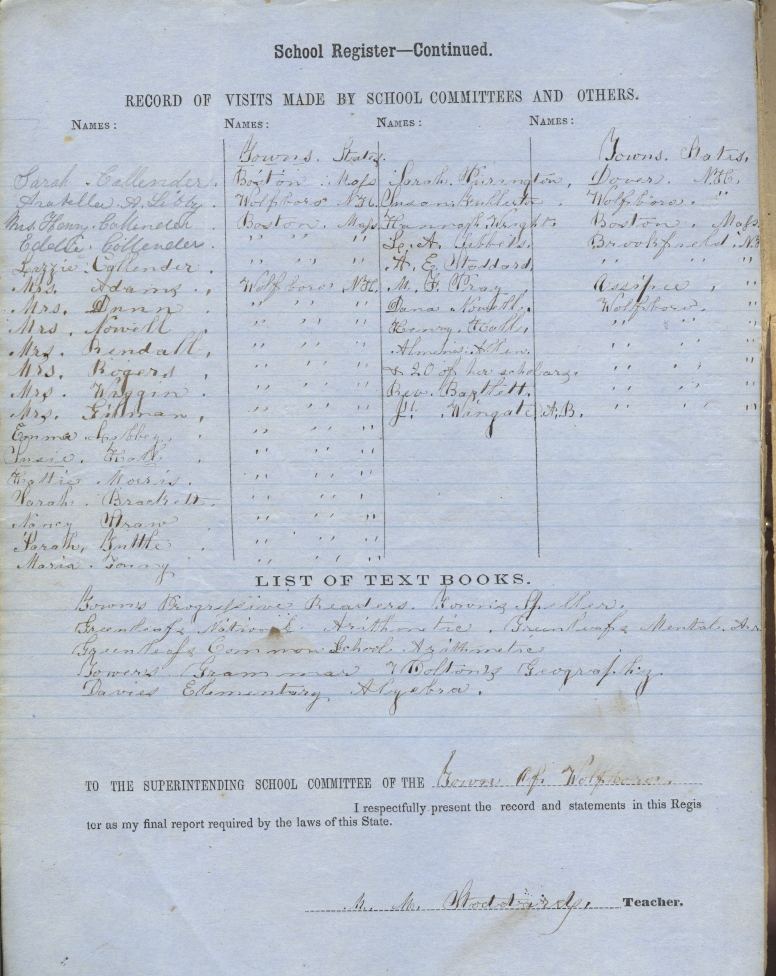 School Register—Continued.
RECORD OF VISITS MADE BY SCHOOL COMMITTEES AND OTHERS.
NAMES: NAMES: NAMES: NAMES:
Towns. States. Towns. States.
Sarah Callender. Boston Mass Sarah Purington, Dover N.H.
Arabella A. Libby Wolfboro N.H. Susan Wolfboro "
Mrs Henry Callender Boston Mass Hannah Wright. Boston Mass
Edelle Callender " " " A. Tibbets. Brookfield N.H
Lizzie Callender. " " " A. E. Stoddard. " " "
Mrs. Adams, Wolfboro N.H. M. F. Wray Ossipee "
Mrs. Dunn " " " Dana Nowell, Wolfboro. "
Mrs Nowell " " " Henry Hall, " " "
Mrs. Kendall, " " " Almena Allen. " " "
Mrs. Rogers, " " " & 20 of her scholars. " " "
Mrs. Wiggin. " " " Rev. Bartlett. " " "
Mrs. Gilman, " " " Wingate A.B. " " "
Emma Libbey, " " "
Susie Hall " " "
Hattie Morris. " " "
Sarah Brackett. " " "
Nancy Straw " " "
Sarah, Tuttle " " "
Maria " " "
LIST OF TEXT BOOKS.
Town's Progressive Readers. Town's Speller.
Greenleaf's National Arithmetic. Greenleafs Mental Ar
Greenleafs Common School Arithmetic
Towers Grammar & Colton's Geography
Davies Elementary Algebra.
TO THE SUPERINTENDING SCHOOL COMMITTEE OF THE Town Of Wolfboro.
I respectfully present the record and statements in this Regis
ter as my final report required by the laws of this State.
M. M. Stoddard, Teacher.